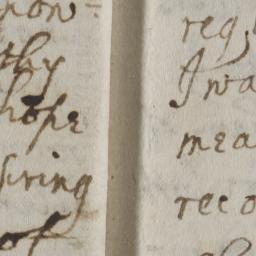 now
thy
hope
siring
of
req
I wa
mea
reco